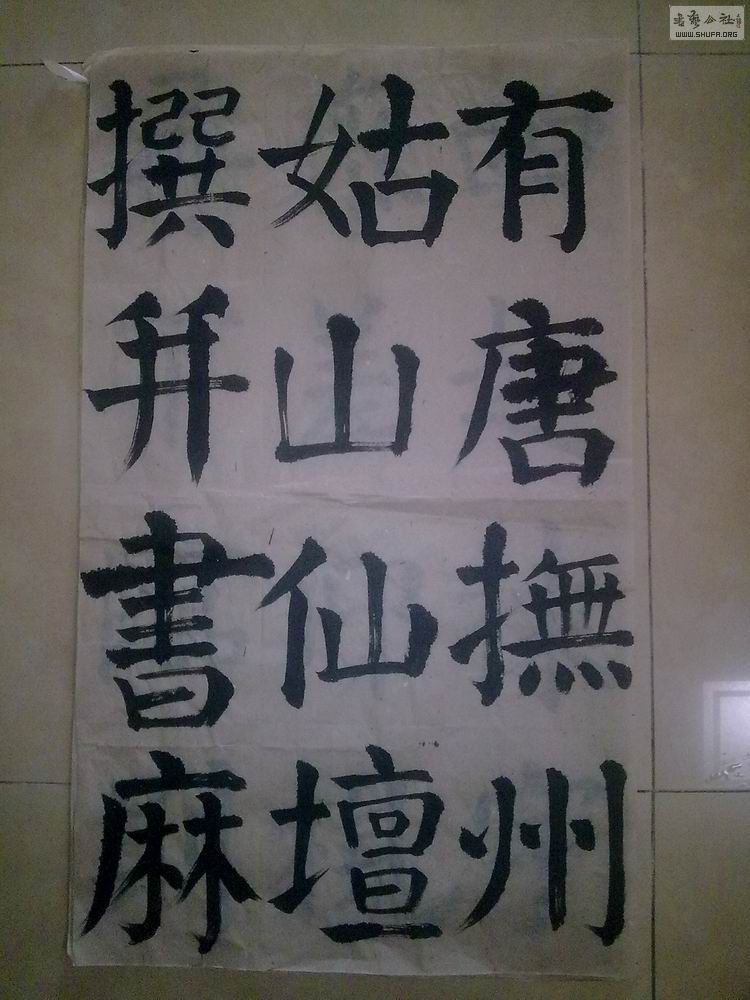 有唐撫州
姑山仙壇
撰并書麻
书艺公社
WWW.SHUFA.ORG